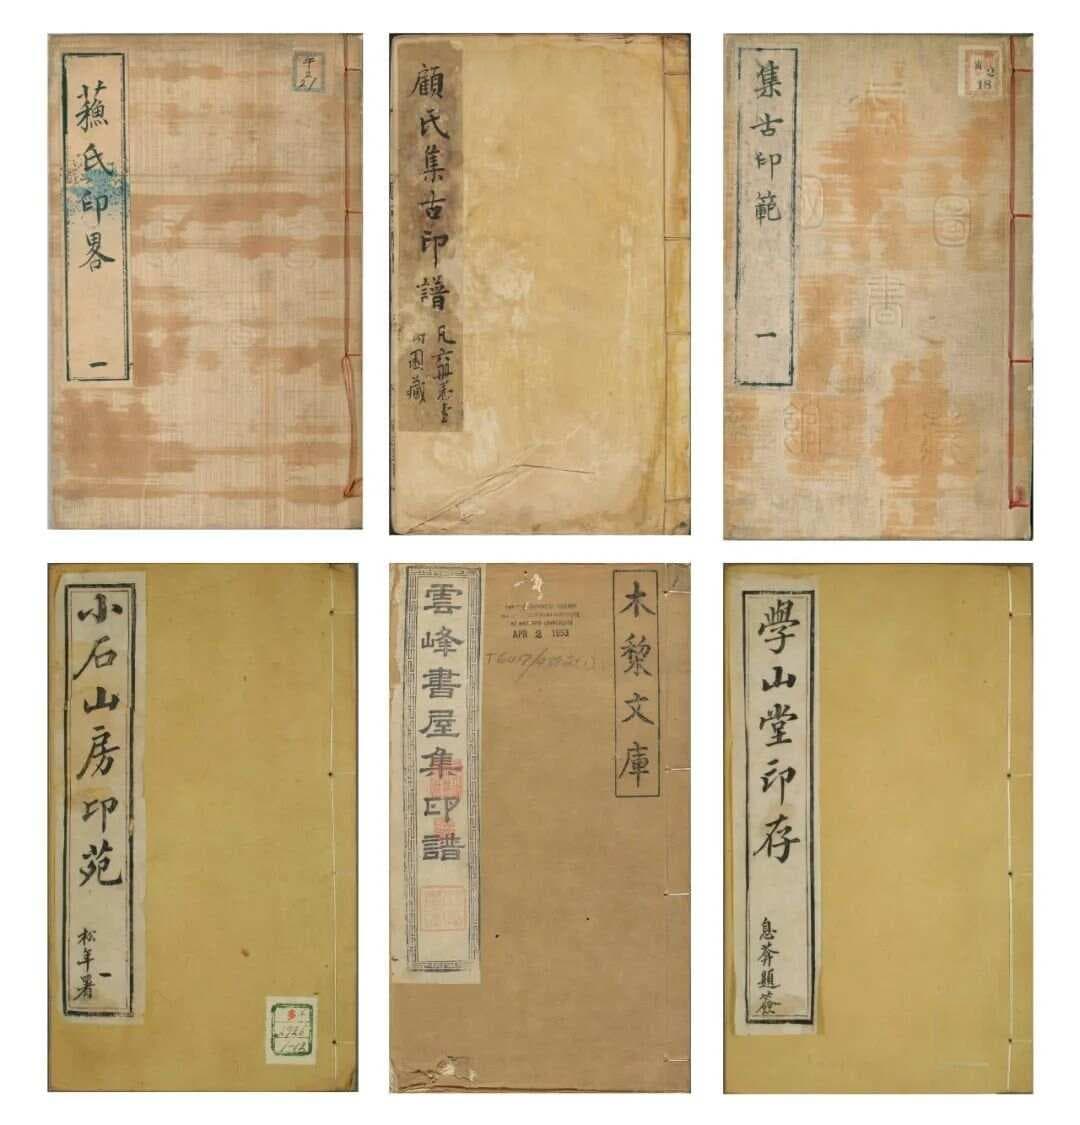 蘓氏印畧
一
顧氏集古印譜
集古印範
一
2
18
小石山房印苑
松年署
一
1-12
木黎文庫
雲峰書屋集印譜
APR 2 1953
學山堂印存
息葊題簽